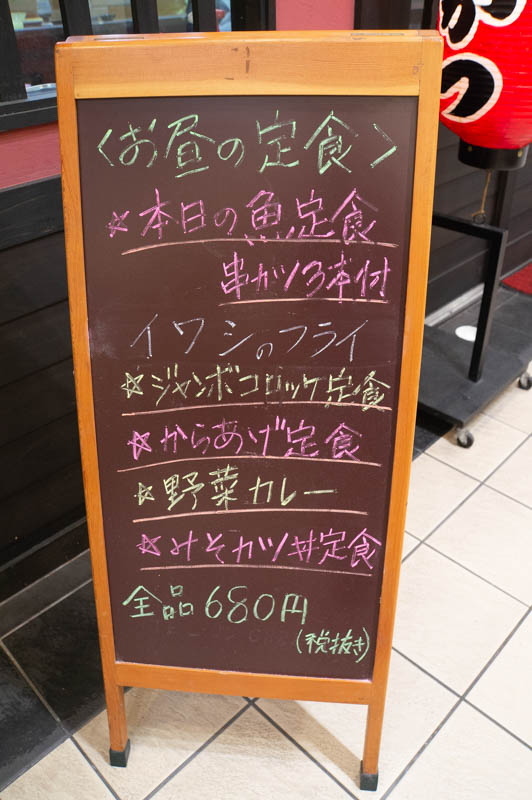 〈お昼の定食〉
☆本日の魚定食
串カツ3本付
イワシのフライ
☆ジャンボコロッケ定食
☆からあげ定食
☆野菜カレー
☆みそカツ丼定食
全品680円
(税抜き)
かつ